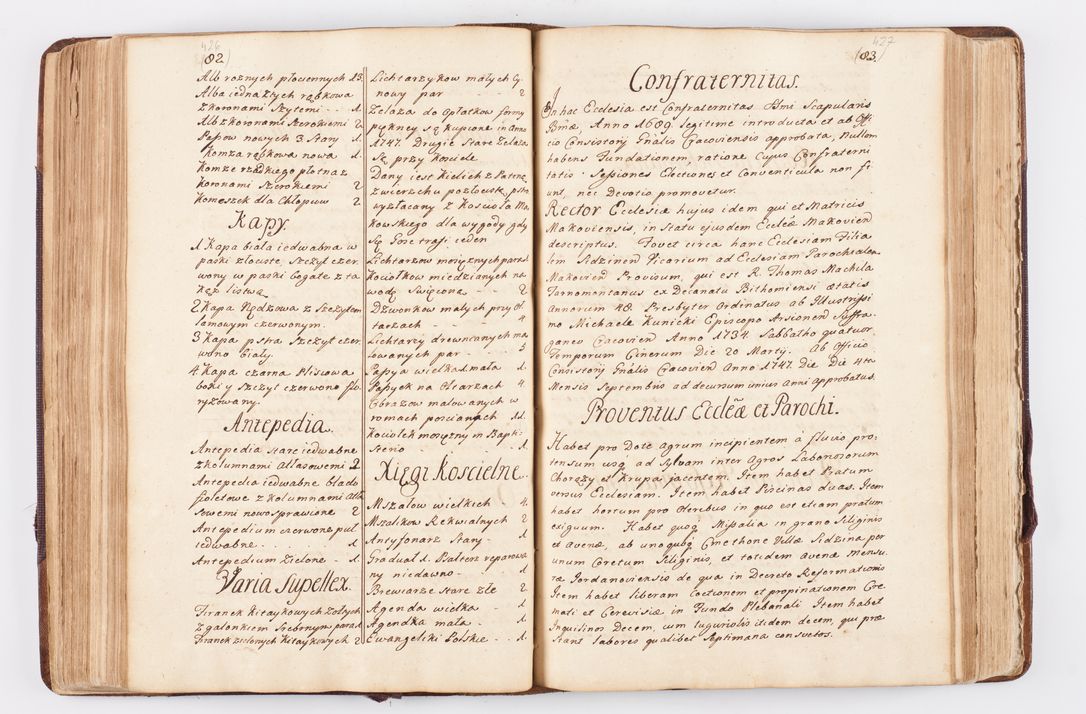 426
(82)
Alb roznych płociennych 13.
Alba iedna z tych rąbkowa
z koronami Szytemi - - 1.
Alb z koronami szerokiemi 2
Pasow nowych 3. Stary 1.
Komza rąbkowa nowa 1.
Komże rzadkiego płotna z
Koronami Szerokiemi 2
Komeszek dla Chłopcow 2
Kapy.
1 Kapa biała iedwabna w
paski złociste, Szczyt czer,
wony w paski bogate z ta
kąż listwą.
2 Kapa Nędzowa z Szczytem
lamowym czerwonym.
3 Kapa pstra Szczyt czer,
wono biały.
4 Kapa czarna Plisiowa
boki y Szczyt czerwono flo,
ryzowany.
Antepedia.
Antepedia stare iedwabne
z kolumnami Atłasowemi 2
Antepedia iedwabne blado
fioletowe z kolumnami Atła
sowemi nowo sprawione 2
Antepedium czerwone puł
iedwabne - - - 1.
Antepedium Zielone - 1.
Varia Supellex.
Firanek Kitaykowych Zołtych
z galonkiem Srebrnym para 1
Firanek zielonych Kitaykowych 2
Lichtarzykow małych Cy,
nowy par - - 2
Zelaza do Opłatkow formy
piękney są kupione in Anno
1747. Drugie Stare Zelaza
Są przy Kościele
Dany iest Kielich z Pateną
zwierzchu pozłocistą, pstro
wyzłacany z Koscioła Ma
kowskiego dla wygody gdy
Się Gosc trafi ieden
Lichtarzow mosięznych para 1
Kociołkow miedzianych na
wodę Swięconą - - 2
Dzwonkow małych przy Oł
tarzach - - 4
Lichtarzy drewnianych ma
lowanych par - - 5
Passya wielka 1. mała 1.
Passyek na Ołtarzach 4
Obrazow malowanych w
romach poscianach 11.
Kociołek mosiężny in Bapti
sterio - - 1.
Xięgi Koscielne
Mszałow wielkich - 4.
Mszalikow Rekwialnych 2
Antyfonarz Stary - 1.
Graduał 1. Psałterz reparowa
ny niedawno - 1
Brewiarze stare złe 2
Agenda wielka - 1
Agendka mała - 1.
Ewangeliki Polskie - 1.
427
(83.
Confraternitas.
In hac Ecclesia est Confraternitas Ssmi Scapularis
Bmæ, Anno 1609. legitime introducta et ab Offi
cio Consistorij Gnalis Cracoviensis approbata, Nullam
habens Fundationem, ratione Cujus Confraterni
tatis Sessiones Electiones et Conventicula non fi
unt, nec Devotio promovetur.
Rector Ecclesiæ hujus idem qui et Matricis
Makoviensis, in Statu ejusdem Ecclæ Makovien
descriptus. Fovet circa hanc Ecclesiam Filia
lem Sidzinen Vicarium ad Ecclesiam Parochialem
Makovien Provisum, qui est R. Thomas Machila
Tarnomontanus ex Decanatu Bithomiensi ætatis
Annorum 48. Presbyter Ordinatus ab Illustrissi
mo Michaele Kunicki Episcopo Arsionen Suffra
ganeo Cracovien Anno 1734. Sabbatho quatuor
Temporum Cinerum Die 20 Martij. Ab Officio
Consistorij Gnalis Cracovien Anno 1747. Die Die 4ta
Mensis Septembris ad decursum unius Anni approbatus.
Proventus Ecclæ et Parochi.
Habet pro Dote Agrum incipientem à fluvio pro,
tensum usq ad Sylvam inter Agros Laboriosorum
Chorąży et Krupa jacentem. Item habet Pratum
versus Ecclesiam. Item habet Piscinas duas. Item
habet hortum pro Oleribus in quo est etiam pratum
exiguum. Habet quoq Missalia in grano Siliginis
et Avenæ, ab unoquoq Cmethone Villæ Sidzina per
unum Coretum Siliginis, et totidem Avenæ Mensu
ræ Jordanoviensis de qua in Decreto Reformationis
Item habet liberam Coctionem et propinationem Cre
mati et Cerevisiæ in Fundo Plebanali Item habet
Inquilinos Decem, cum tuguriolis itidem decem, qui præ
stant labores qualibet Septimana consvetos.